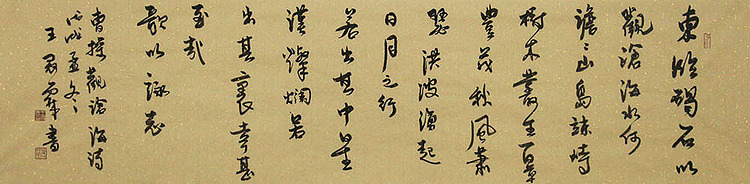 東臨碣石以
觀滄海水何
澹〻山島竦峙
樹木叢生百草
豐茂秋風蕭
瑟洪波湧起
日月之行
若出其中星
漢燦爛若
出其裏幸甚
至哉
歌以詠志
曹操觀滄海詩
戌孟冬
王書